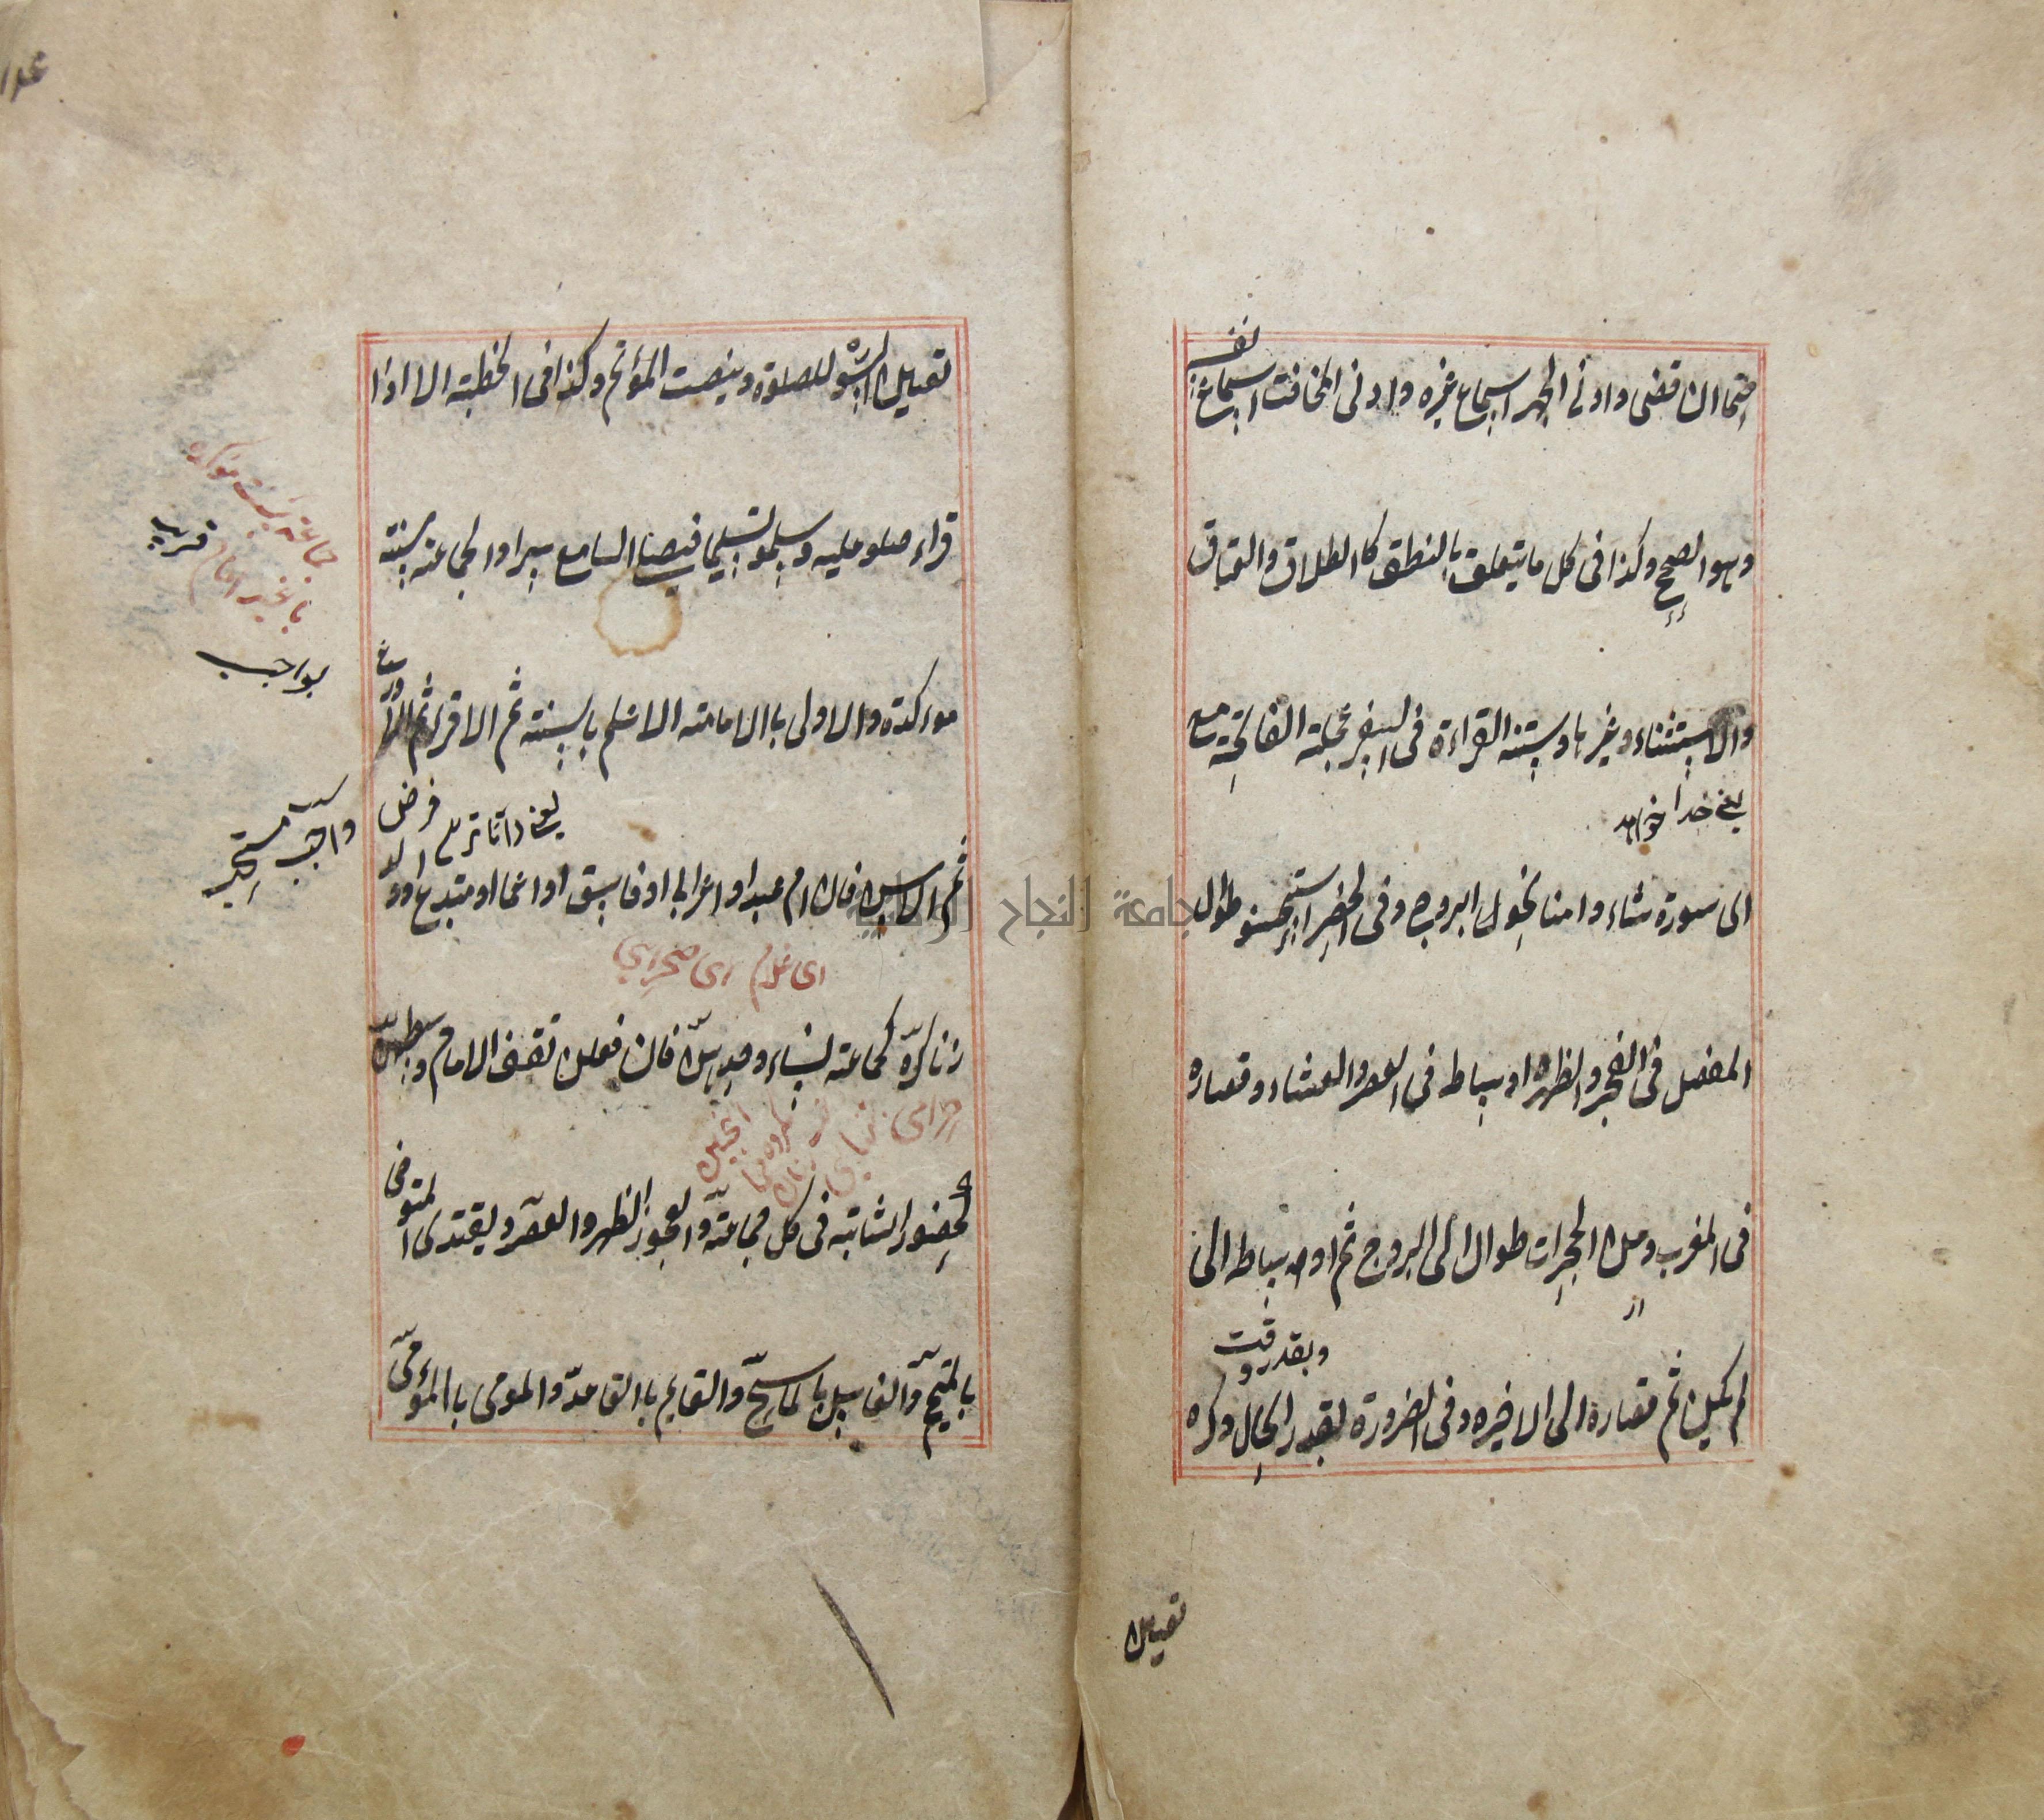 حتما ان قضى وادنى الجهر اسماع غيره وادنى المخافت اسماع نفسه
وهو الصحيح وكذا فى كل ما يتعلق بالنطق كا الطلاق والعتاق
والاستثناء وغيرها وسنة القراءة فى السفر عجلة الفاتحة مع
يعنى خدا خواهد
اى سورة شاء وامنا نحو البروج وفى الحضر استحسنو طوال
المفصل فى الفجر والظهر واوساط فى العصر والعشاء وقصاره
فى المغرب ومن الحجرات طوال الى البروج ثم اوساط الى
از
وبقدر وقت
لم يكن ثم قصاره الى الاخيره وفى الضرورة بقدر الحال وكره
تعيين
تعيين السور للصلوة وينصت المؤتم وكذا فى الخطبة الا اذا
قراء صلو عليه وسلمو تسليما فيصلى السامع سرا والجماعة سنة
جماعة سنت موكده
قريب
بواجب
موءكدة والاولى باالامامة الاعلم باسنة ثم الاقراء ثم الاورع
فرض
واجب مستحب
ثم الاسن فان ام عبد او اعرابى او فاسق او اعمى او مبتدع او ولد
اى غلام اى صحرايى
زنا كره كجماعة نساء وحدهن فان فعلن تقف الامام وسطهن
حرامى
كحضور الشابة فى كل جماعة والعجوز الظهر والعصر ويقتدى المتوضى
بالمتيمم والغاسل بالماسح والقايم باالقاعد والمومى باالمؤمى